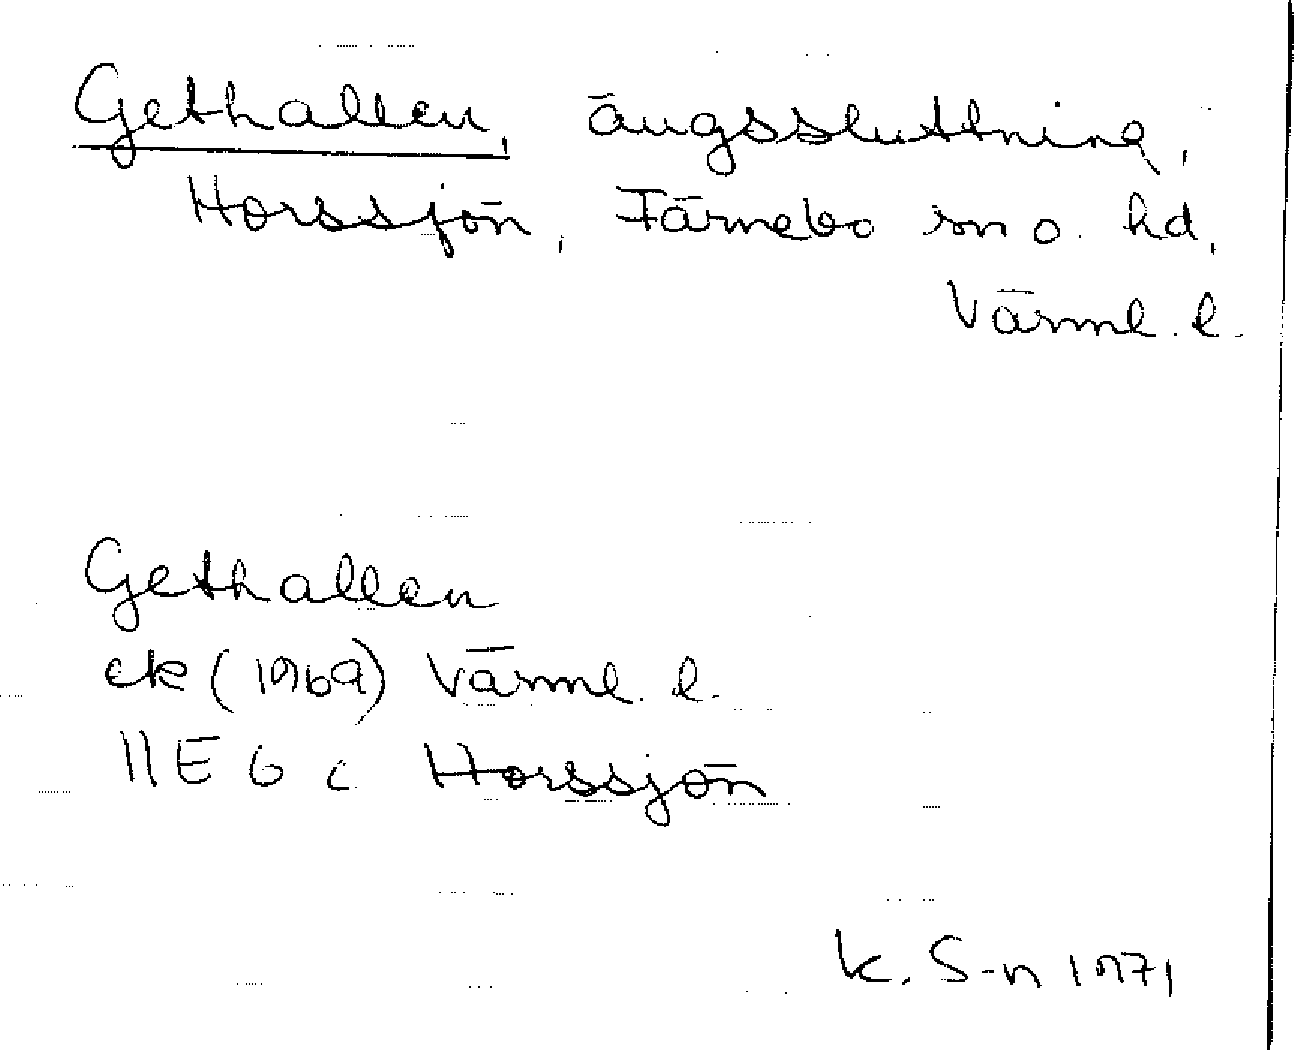 Gethallen, ängssluttning,
Horssjön, Färnebo sn o. hd,
Värml. l.
Gethallen
ek (1969) Värml. l.
11E 6 c Horssjön
K. S-n 1971